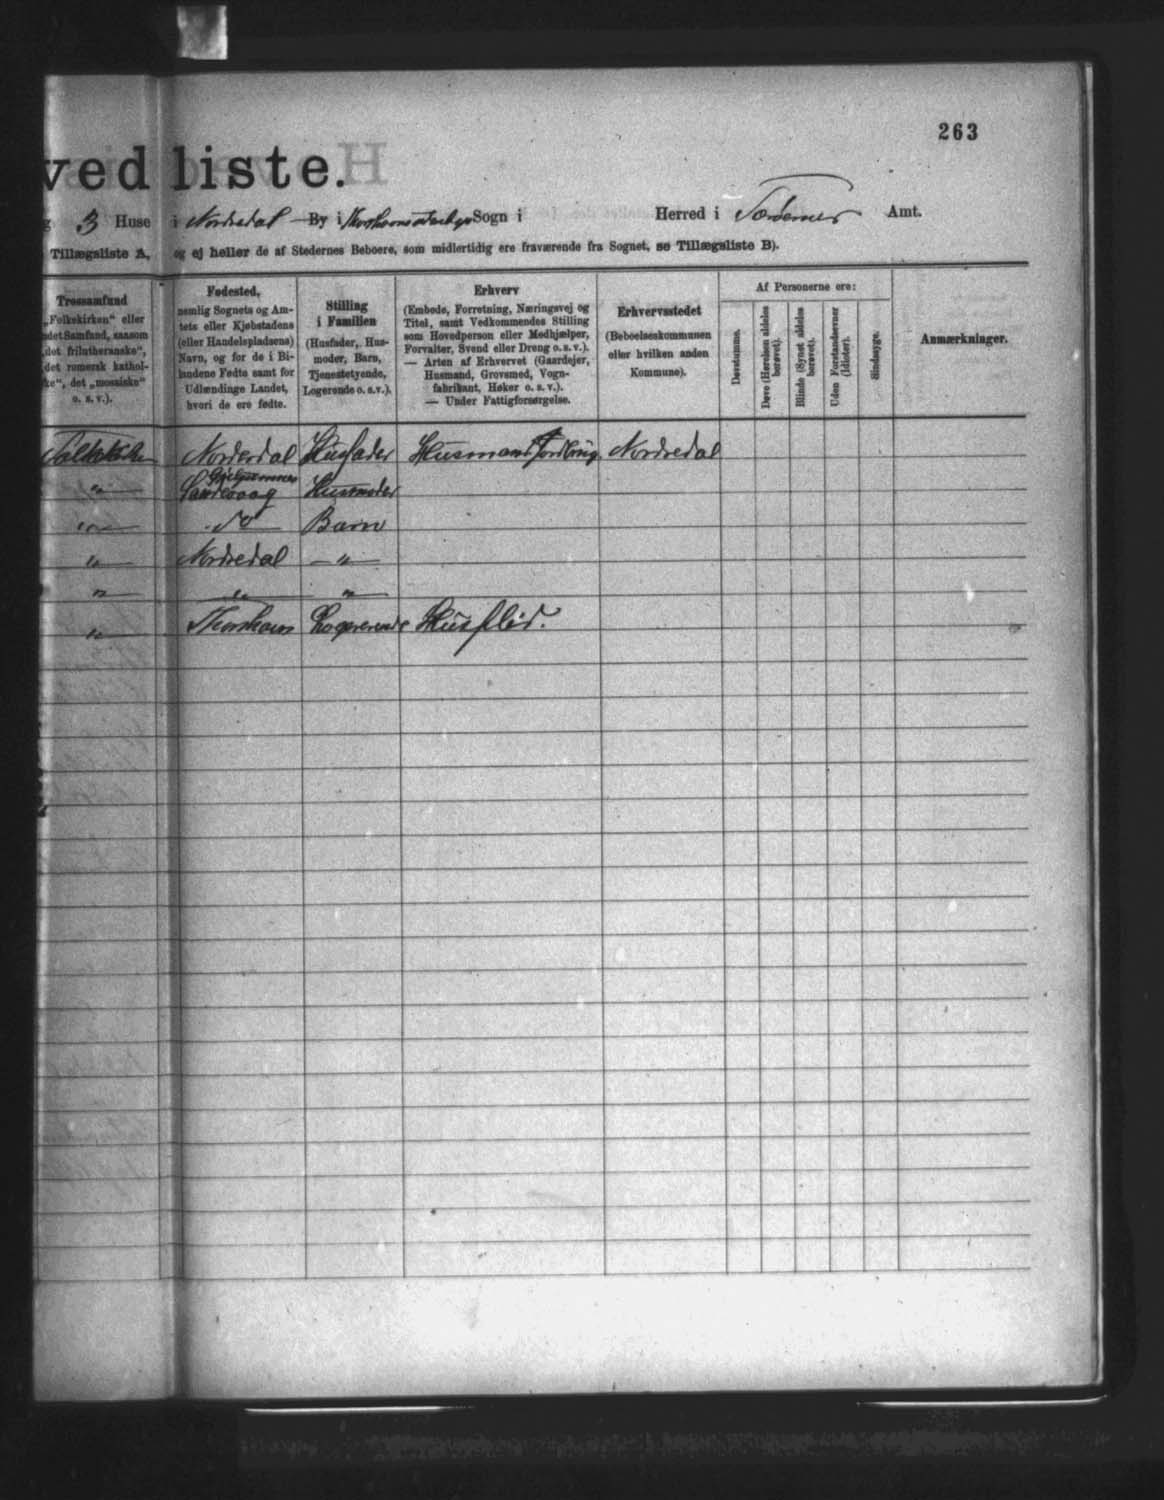 263
vedliste.
g 3 Huse i Nordredal By i Sogn i Herred i Færøernes Amt.
Tillægsliste A, og ej heller de af Stedernes Beboere, som midlertidig ere fraværende fra Sognet, se Tillægsliste B).
Trossamfund
„Folkekirken“ eller
det Samfund, saasom
„det frilutheranske“,
det romersk kathol-
ke“, det „mosaiske“
o. s. v.).
Fødested,
nemlig Sognets og Am-
tets eller Kjøbstadens
(eller Handelspladsens)
Navn, og for de i Bi-
landene Fødte samt for
Udlændinge Landet,
hvori de ere fødte.
Stilling
i Familien
(Husfader, Hus-
moder, Barn,
Tjenestetyende,
Logerende o. s. v.).
Erhverv
(Embede, Forretning, Næringsvej og
Titel, samt Vedkommendes Stilling
som Hovedperson eller Medhjælper,
Forvalter, Svend eller Dreng o. s. v.).
— Arten af Erhvervet (Gaardejer,
Husmand, Grovsmed, Vogn-
fabrikant, Høker o. s. v.).
— Under Fattigforsørgelse.
Erhvervsstedet
(Beboelseskommunen
eller hvilken anden
Kommune).
Af Personerne ere:
Døvstumme.
Døve (Hørelsen aldeles
berøvet).
Blinde (Synet aldeles
berøvet).
Uden Forstandsevner
(Idioter).
Sindssyge.
Anmærkninger.
Folkekirken Norderdal Husfader Husmand Jordbrug Nordredal
" Sandevaag Husmoder
" do Barn
" Nordredal — "
" " "
" Thorshavn Logerende Husflid.